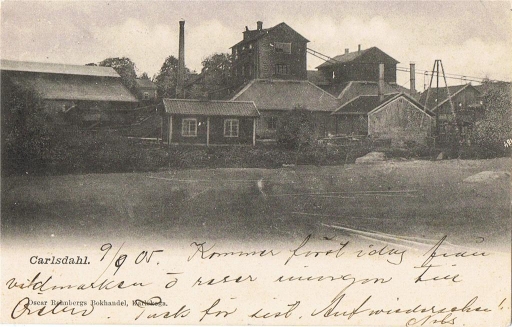 Carlsdahl. 9/9 05. Kommer först idag från
vildmarken o reser imorgon till
Oscar Behnbergs Bokhandel, Karlskoga.
Örebro. Tack för sist. Auf wiedersehen!